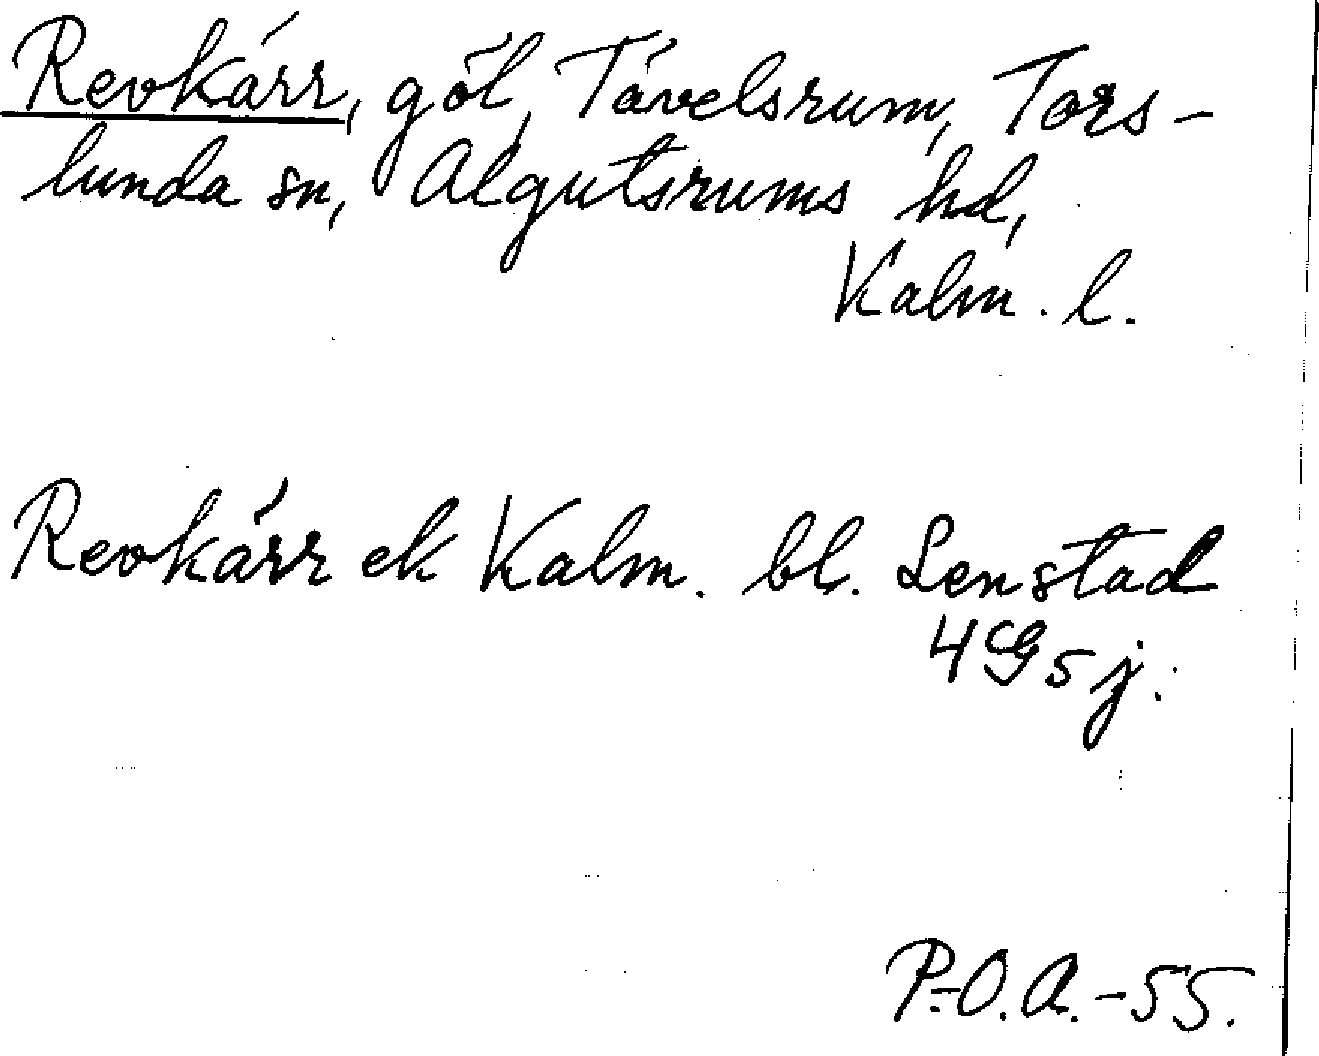 Revkärr, göl, Tävelsrum, Tors-
lunda sn, Algutsrums hd,
Kalm. l.
Revkärr ek Kalm. bl. Lenstad
4 G5 j.
P.-O. A. -55.